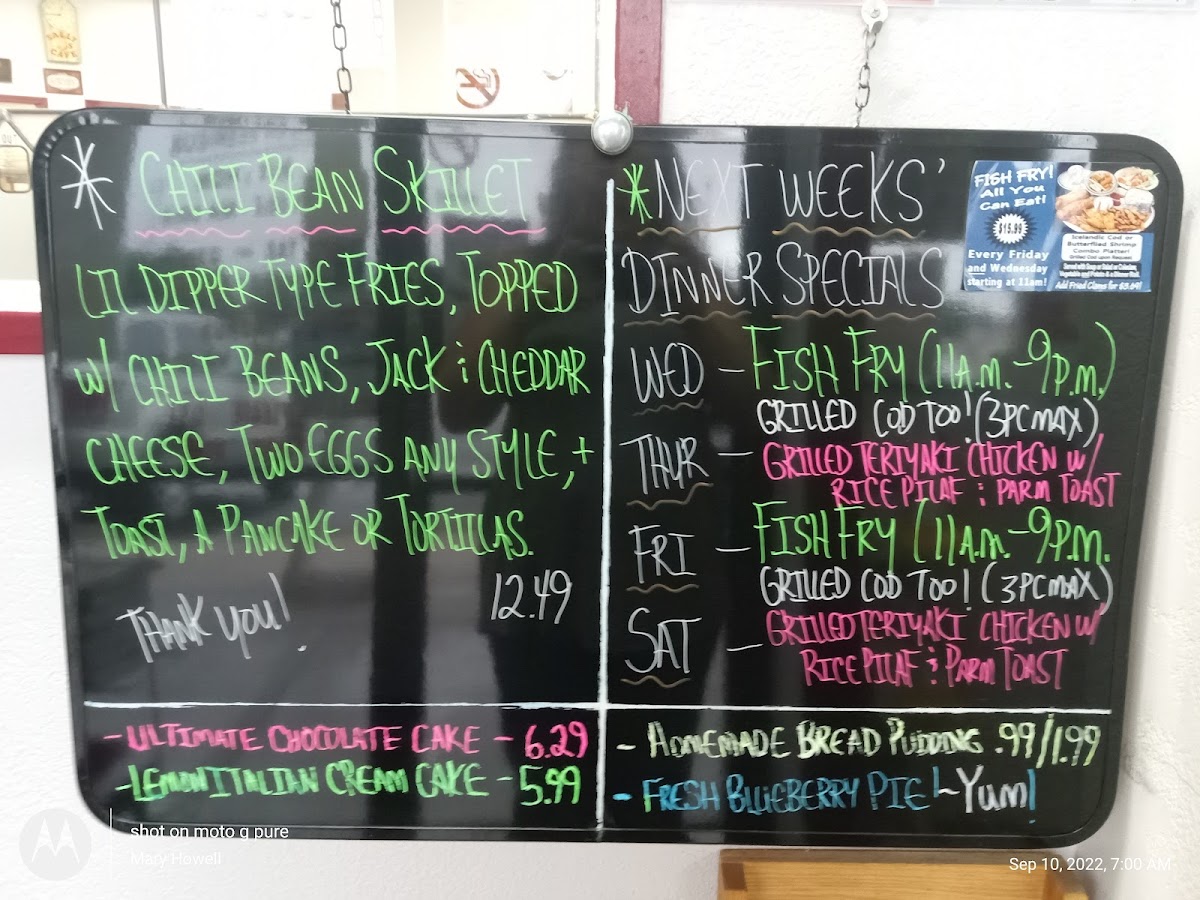 * CHILI BEAN SKILLET
LIL DIPPER TYPE FRIES, TOPPED
W/ CHILI BEANS, JACK & CHEDDAR
CHEESE, TWO EGGS ANY STYLE, +
TOAST, A PANCAKE OR TORTILLAS.
12.49
THANK YOU!
*NEXT WEEKS'
DINNER SPECIALS
WED - FISH FRY (11A.M.-9P.M.)
GRILLED COD TOO! (3PC MAX)
THUR - GRILLED TERIYAKI CHICKEN W/
RICE PILAF & PARM TOAST
FRI - FISH FRY (11A.M.-9P.M.
GRILLED COD TOO! (3PC MAX)
SAT - GRILLED TERIYAKI CHICKEN W/
RICE PILAF & PARM TOAST
FISH FRY!
All You
Can Eat!
$15.99
Every Friday
and Wednesday
starting at 11am!
Icelandic Cod or
Butterflied Shrimp
Combo Platter!
Grilled Cod upon Request
Served with Soup or Salad or Coleslaw,
Vegetable and Potato & a Dinner Roll.
Add Fried Clams for $3.69!
- ULTIMATE CHOCOLATE CAKE - 6.29
- LEMON ITALIAN CREAM CAKE - 5.99
- HOMEMADE BREAD PUDDING .99/1.99
- FRESH BLUEBERRY PIE! ~ YUM!
shot on moto g pure
Mary Howell
Sep 10, 2022, 7:00 AM